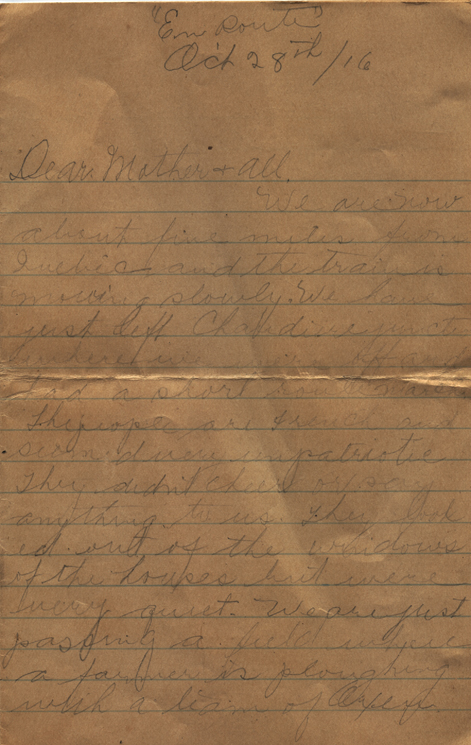 "En Route"
Oct 28th/16
Dear Mother & all,
We are now
about five miles from
Quebec, and the train is
moving slowly. We have
just left Chaudiere junction
where we off and
had a short march
The people are French and
seemed very unpatriotic
They didn't cheer or say
anything to us. They look
ed out of the windows
of the houses but were
very quiet. We are just
passing a field where
a farmer is ploughing
with a team of Oxen.